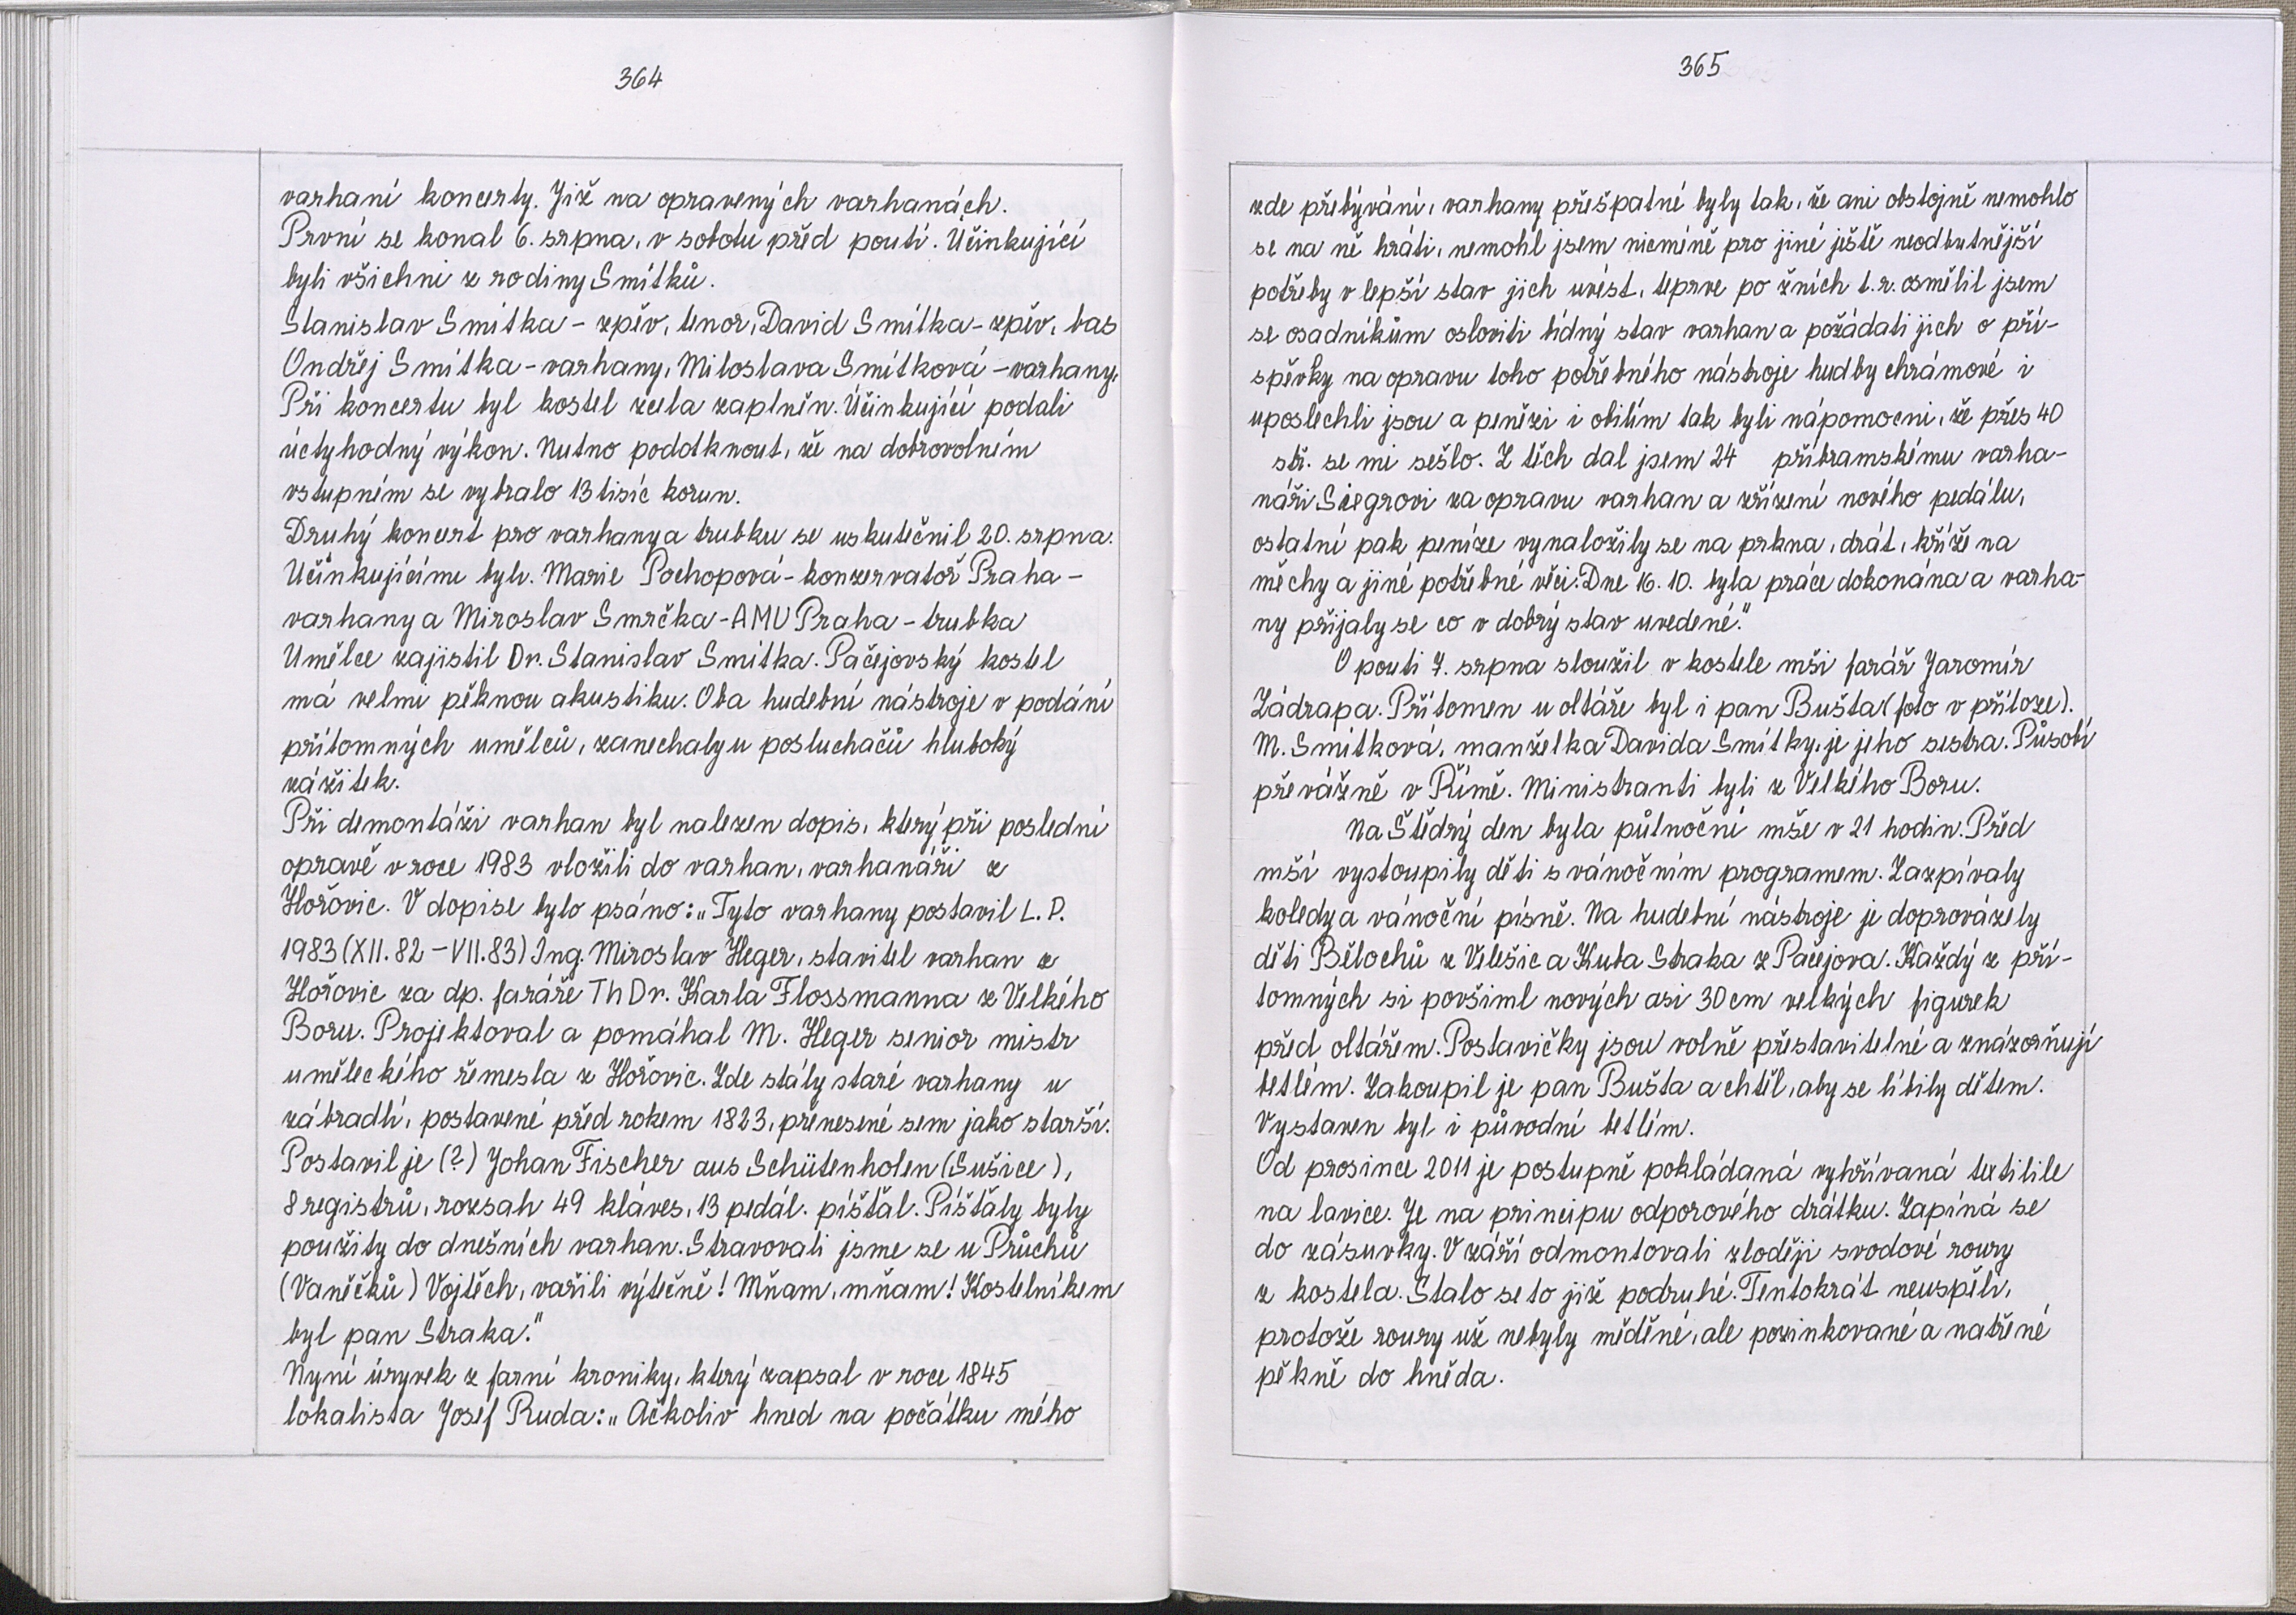 364
varhaní koncerty. Již na opravených varhanách.
První se konal 6. srpna, v sobotu před poutí. Učinkující
byli všichni z rodiny Smitků.
Stanislav Smitka - zpěv, tenor, David Smitka - zpěv, bas
Ondřej Smítka - varhany, Miloslava Smítková - varhany.
Při koncertu byl kostel zcela zaplněn. Účinkující podali
úctyhodný výkon. Nutno podotknout, že na dobrovolném
vstupném se vybralo 13 tisíc korun.
Druhý koncert pro varhany a trubku se uskutečnil 20. srpna.
Učinkujícími byli. Marie Pochopová - konzervatoř Praha -
varhany a Miroslav Smrčka - AMU Praha - trubka
Umělce zajistil Dr. Stanislav Smitka. Pačejovský kostel
má velmi pěknou akustiku. Oba hudební nástroje v podání
přítomných umělců, zanechaly u posluchačů hluboký
zážitek.
Při demontáži varhan byl nalezen dopis, který při poslední
opravě v roce 1983 vložili do varhan, varhanáři z
Hořovic. V dopise bylo psáno: „Tyto varhany postavil L. P.
1983 (XII. 82 - VII. 83) Ing. Miroslav Heger, stavitel varhan z
Hořovic za dp. faráře Th Dr. Karla Flossmanna z Velkého
Boru. Projektoval a pomáhal M. Heger senior mistr
uměleckého řemesla z Hořovic. Zde stály staré varhany u
zábradlí, postavené před rokem 1823, přenesené sem jako starší.
Postavil je (?) Johan Fischer aus Schütenhofen (Sušice),
8 registrů, rozsah 49 kláves, 13 pedál. píšťal. Píšťaly byly
použity do dnešních varhan. Stravovali jsme se u Průchů
(Vaněčků) Vojtěch, vařili výtečně! Mňam, mňam! Kostelníkem
byl pan Straka."
Nyní úryvek z farní kroniky, který zapsal v roce 1845
lokalista Josef Ruda: „Ačkoliv hned na počátku mého
365
zde přebývání, varhany přešpatné byly tak, že ani obstojně nemohlo
se na ně hráti, nemohl jsem nicméně pro jiné ještě neodbytnější
potřeby v lepší stav jich uvést, teprve po žních t.r. osmělil jsem
se osadníkům osloviti bídný stav varhan a požádati jich o pří-
spěvky na opravu toho potřebného nástroje hudby chrámové i
uposlechli jsou a penězi i obilím tak byli nápomocni, že přes 40
stř. se mi sešlo. Z těch dal jsem 24 příbramskému varha-
náři Siegrovi za opravu varhan a zřízení nového pedálu,
ostatní pak peníze vynaložily se na prkna, drát, kříže na
měchy a jiné potřebné věci. Dne 16. 10. byla práce dokonána a varha-
ny přijaly se co v dobrý stav uvedené."
O pouti 7. srpna sloužil v kostele mši farář Jaromír
Zádrapa. Přítomen u oltáře byl i pan Bušta (foto v příloze).
M. Smitková, manželka Davida Smítky, je jeho sestra. Působí
převážně v Římě. Ministranti byli z Velkého Boru.
Na Štědrý den byla půlnoční mše v 21 hodin. Před
mší vystoupily děti s vánočním programem. Zazpívaly
koledy a vánoční písně. Na hudební nástroje je doprovázely
děti Bělochů z Velešic a Kuba Straka z Pačejova. Každý z pří-
tomných si povšiml nových asi 30 cm velkých figurek
před oltářem. Postavičky jsou volně přestavitelné a znázorňují
betlém. Zakoupil je pan Bušta a chtěl, aby se líbily dětem.
Vystaven byl i původní betlém.
Od prosince 2011 je postupně pokládaná vyhřívaná textilile
na lavice. Je na principu odporového drátku. Zapíná se
do zásuvky. V září odmontovali zloději svodové roury
z kostela. Stalo se to již podruhé. Tentokrát neuspěli,
protože roury už nebyly měděné, ale pozinkované a natřené
pěkně do hněda.